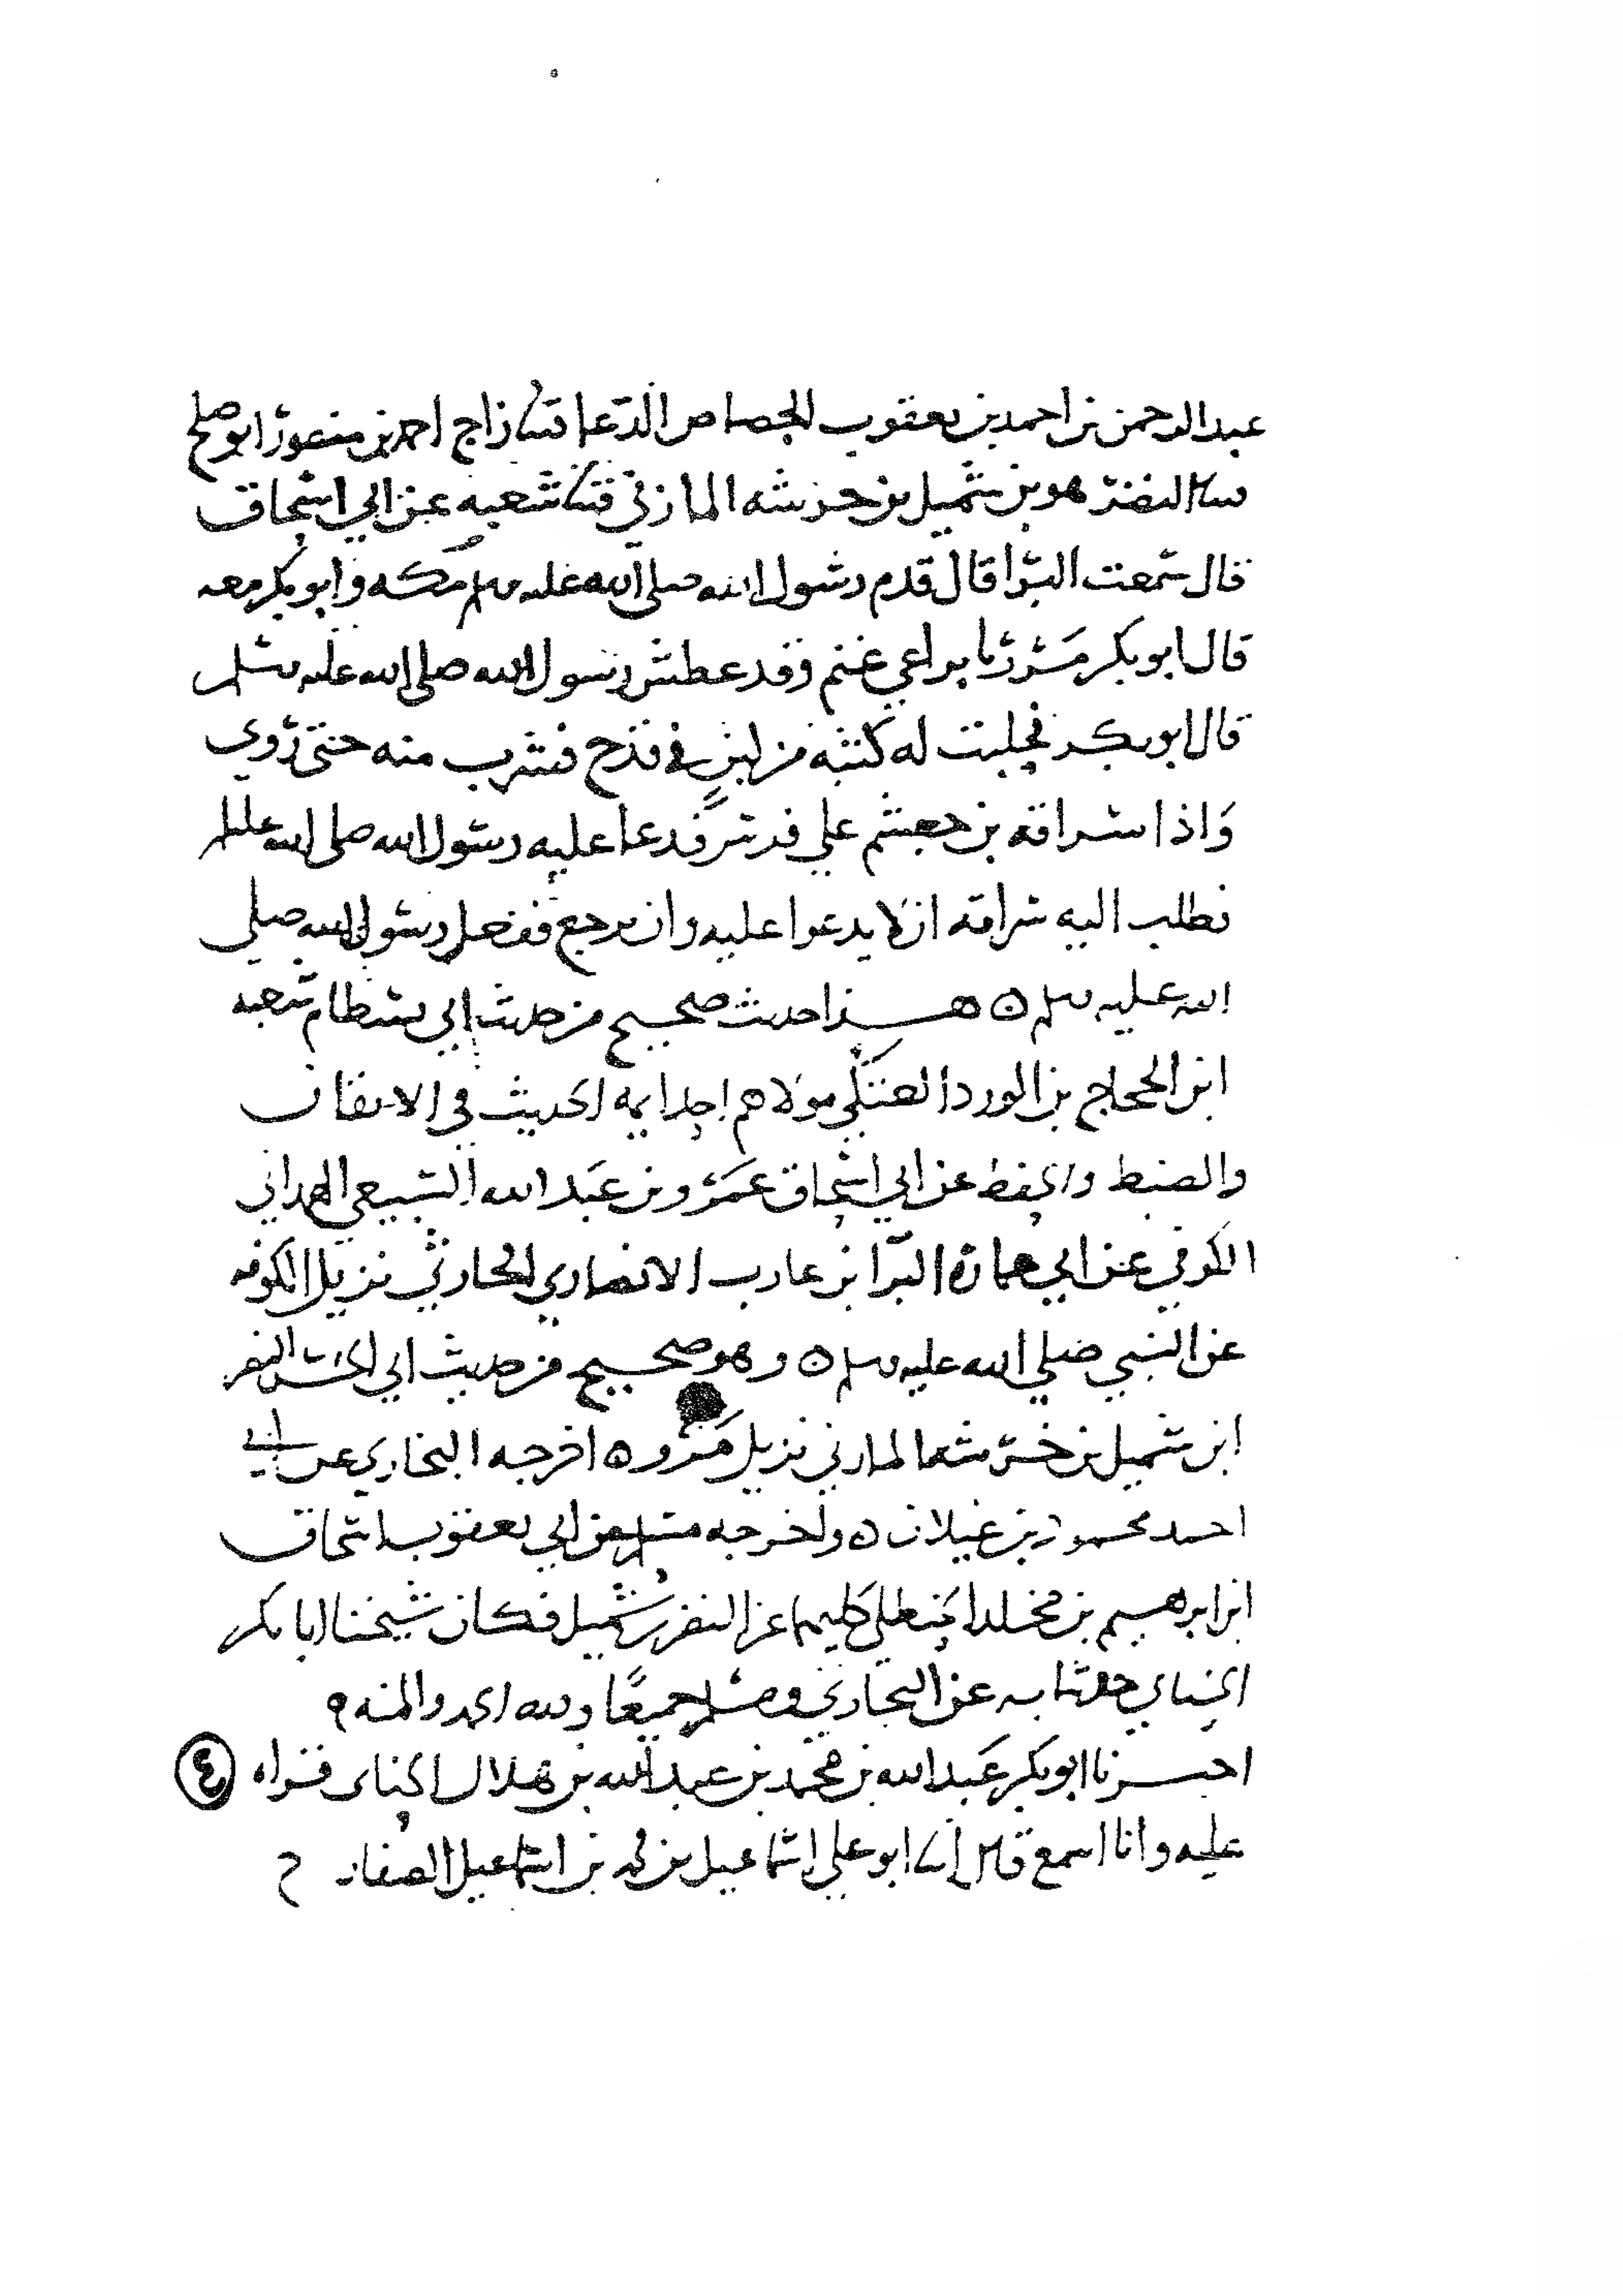 عبد الرحمن بن احمد بن يعقوب الجصاص الدعا قثنا زاج احمد بن منصور ابو صلح
ثنا النضر هو بن شميل بن خرشه المازني قثنا شعبه عن ابي اسحاق
قال سمعت البرا قال قدم رسول الله صلى الله عليه وسلم مكه وابو بكر معه
قال ابو بكر مررنا براعي غنم وقد عطش رسول الله صلى الله عليه وسلم
قال ابو بكر فحلبت له كثبه من لبن في قدح فشرب منه حتى روي
واذا سراقه بن جعشم علي فرس فدعا عليه رسول الله صلى الله عليه
فطلب اليه سراقه ان لا يدعوا عليه وان يرجع ففعل رسول الله صلى
الله عليه وسلم ٥ هذا حديث صحيح من حديث ابي بسطام شعبه
ابن الحجاج بن الورد العتكي مولاهم احد ايمه الحديث في الاتقان
والضبط والحفظ عن ابي اسحاق عمرو بن عبد الله السبيعي الهمداني
الكوفي عن ابي عمارة البرا بن عازب الانصاري الحارثي نزيل الكوفه
عن النبي صلي الله عليه وسلم ٥ وهو صحيح من حديث ابي الحسن النضر
ابن شميل بن خرشه المازني نزيل مرو ٥ اخرجه البخاري عن ابي
احمد محمود بن غيلان ٥ واخرجه مسلم عن ابي يعقوب اسحاق
ابن ابراهيم بن مخلد الحنظلي كليهما عن النضر بن شميل فكان شيخنا ابا بكر
الحنائي حدثنا به عن البخاري ومسلم جميعًا ولله الحمد والمنه ٩
اخبرنا ابو بكر عبد الله بن محمد بن عبد الله بن هلال الحنائي قراه ٤
عليه وانا اسمع قال انا ابو علي اسماعيل بن محمد بن اسماعيل الصفار ح